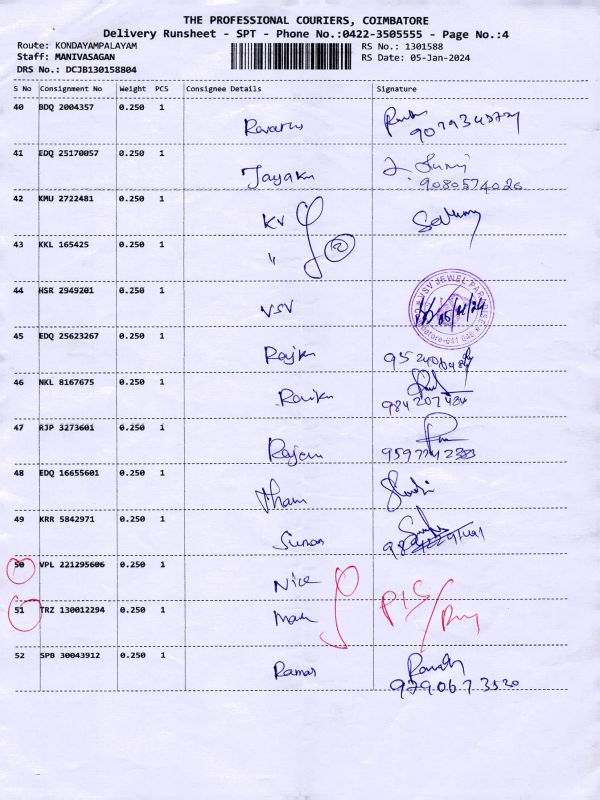 THE PROFESSIONAL COURIERS, COIMBATORE
Delivery Runsheet - SPT - Phone No.:0422-3505555 - Page No.:4
Route: KONDAYAMPALAYAM RS No.: 1301588
Staff: MANIVASAGAN RS Date: 05-Jan-2024
DRS No.: DCJB130158804
S No Consignment No Weight PCS Consignee Details Signature
40 BDQ 2004357 0.250 1
41 EDQ 25170057 0.250 1 Jayaku
9080574026
42 KMU 2722481 0.250 1 KV
43 KKL 165425 0.250 1 " 2
44 HSR 2949201 0.250 1 VSV VSV JEWEL PARADISE
45 EDQ 25623267 0.250 1 Rajku
46 NKL 8167675 0.250 1 Raviku
984207484
47 RJP 3273601 0.250 1 Rajem
48 EDQ 16655601 0.250 1 Tham
49 KRR 5842971 0.250 1 Suman
50 VPL 221295606 0.250 1 Nice
51 TRZ 130012294 0.250 1 Man
52 SPB 30043912 0.250 1 Ramar
9790673530